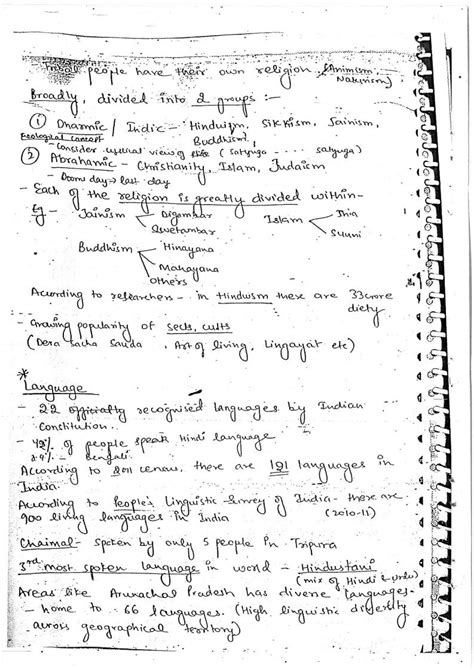 Tribal people have their own religion (Animism, Naturism)
Broadly, divided into 2 groups :-
① Dharmic / Indic - Hinduism, Sikhism, Jainism, Buddhism,
Ecological concept
- Consider cyclical view of life (Satyuga - - - - Satyuga)
② Abrahamic - Christianity, Islam, Judaism
- Doomsday → last day
- Each of the religion is greatly divided within -
Eg - Jainism Digambar Islam Shia
Svetambar Sunni
Buddhism Hinayana
Mahayana
Others
According to researchers - in Hinduism there are 33 crore diety
- Growing popularity of sects, cults
(Dera Sacha Sauda, Art of living, Lingayat etc)
* Language
- 22 officially recognised languages by Indian
Constitution.
- % of people speak Hindi language
% - Bengali
According to 2011 census, there are 121 languages in
India.
According to People's Linguistic Survey of India - there are
900 living languages in India (2010-11)
Chaimal - Spoken by only 5 people in Tripura
3rd most spoken language in world - Hindustani
(mix of Hindi & Urdu)
Areas like Arunachal Pradesh has diverse languages -
- home to 66 languages. (High linguistic diversity
across geographical territory)